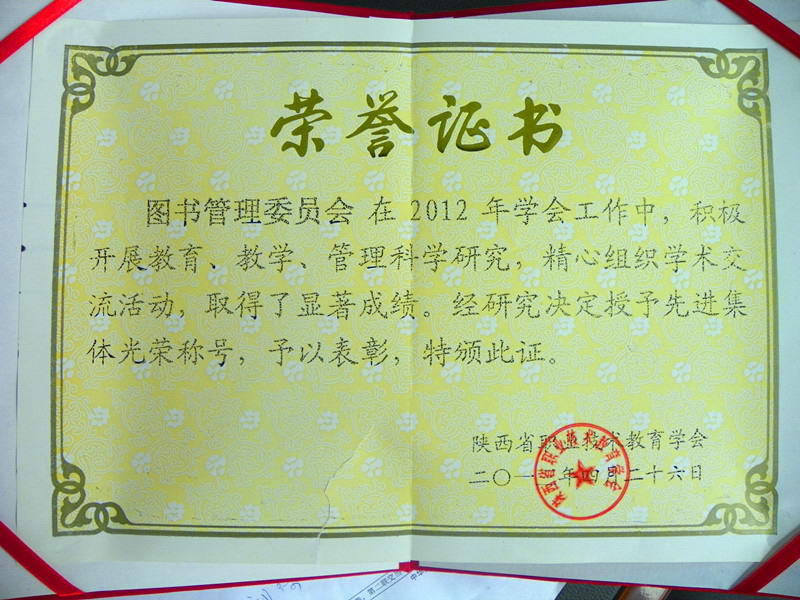 荣誉证书
图书管理委员会 在 2012 年学会工作中，积极
开展教育、教学、管理科学研究，精心组织学术交
流活动，取得了显著成绩。经研究决定授予先进集
体光荣称号，予以表彰，特颁此证。
陕西省职业技术教育学会
二〇一 年四月二十六日
陕西省职业技术教育学会